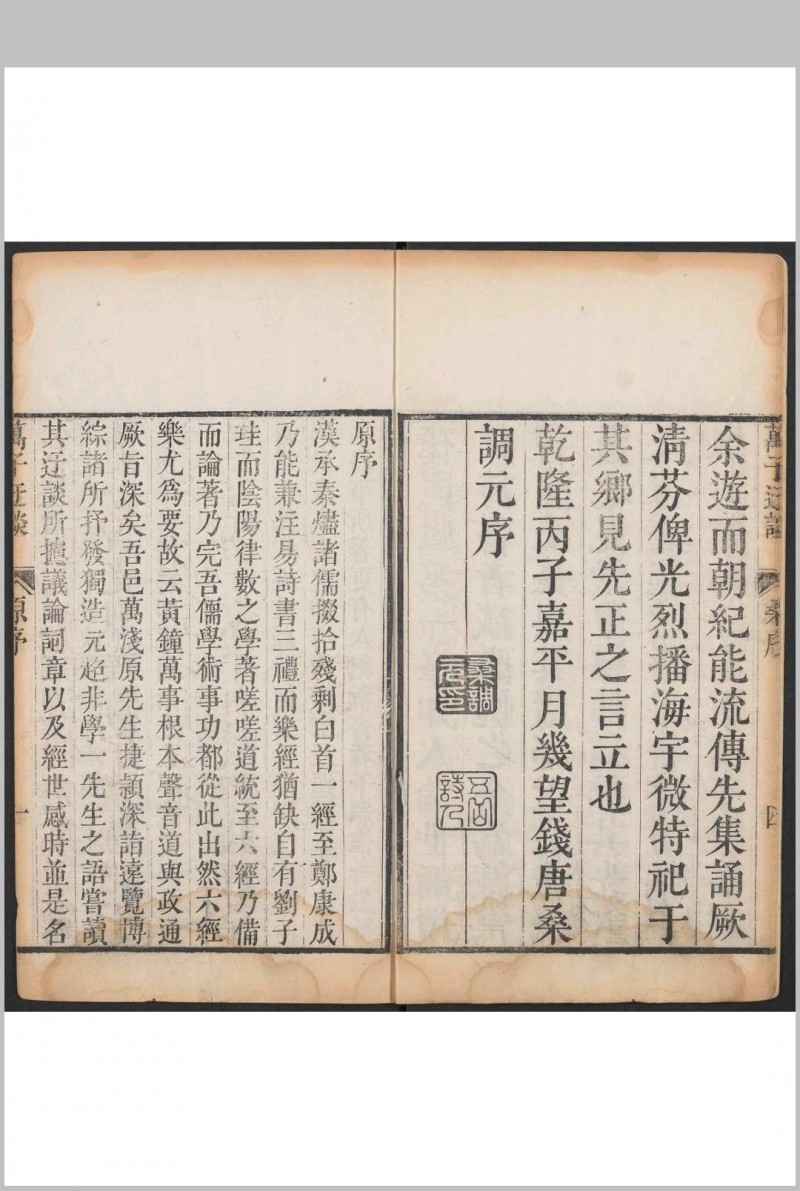 萬子迂談
桑序
四
余遊而朝紀能流傳先集誦厥
淸芬俾光烈播海宇微特祀于
其鄉見先正之言立也
乾隆丙子嘉平月幾望錢唐桑
調元序
桑調元印
五岳詩人
原序
漢承秦燼諸儒掇拾殘剩白首一經至鄭康成
乃能兼注易詩書三禮而樂經猶缺自有劉子
珪而陰陽律數之學著嗟嗟道統至六經乃備
而論著乃完吾儒學術事功都從此出然六經
樂尤爲要故云黃鐘萬事根本聲音道與政通
厥旨深矣吾邑萬淺原先生捷穎深詣遠覽博
綜諸所抒發獨造元超非學一先生之語嘗讀
其迂談所攄議論詞章以及經世感時並是名
萬子迂談
原序
一